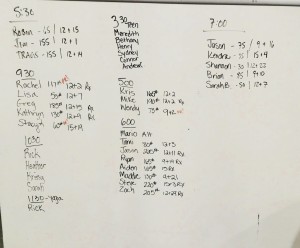 5:30
Kevin - 65 / 12+15
Jim - 155 / 12+1
TRAVIS - 155 / 14+
930
Rachel 12+2 Rx
Lisa 55# 12+7
Greg 185# 12+5 Rx
Kathryn 130# 12+9 Rx
Stacy 15+19
1030
Rick
Heather
Krissy
Sarah
1130 - yoga
Rick
3:30 Teen
Meredith
Bethany
Henry
Sydney
Connor
Andrew
500
Kris 12+2
Mike 12+2 Rx
Wendy 75# 9+2
600
Mario
Tami 80# 12+3
Jason 205# 12+11 Rx
Ryan 165# 9+14 Rx
Aiden 165# 15 Rx
Maddie 130# 9+21
Steve 220# 15+3 Rx
Zach 205# 12+29 Rx
7:00
Jason - 75 / 9+16
Kendra - 35 / 15+4
Shannon - 30 / 12+22
Brian - 95 / 9+0
Sarah B - 50 / 12+7